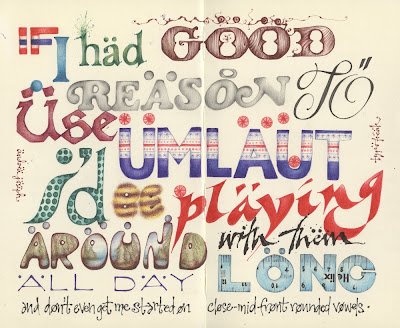 IF I häd GOOD
REÄSÖN TÖ
Üse ÜMLÄÜT
i'd BE pläying
ÄRÖUND with thëm
ÄLL DÄY LÖNG
Helix
and don't even get me stärted on close-mid-front rounded vowels.
andréa joseph